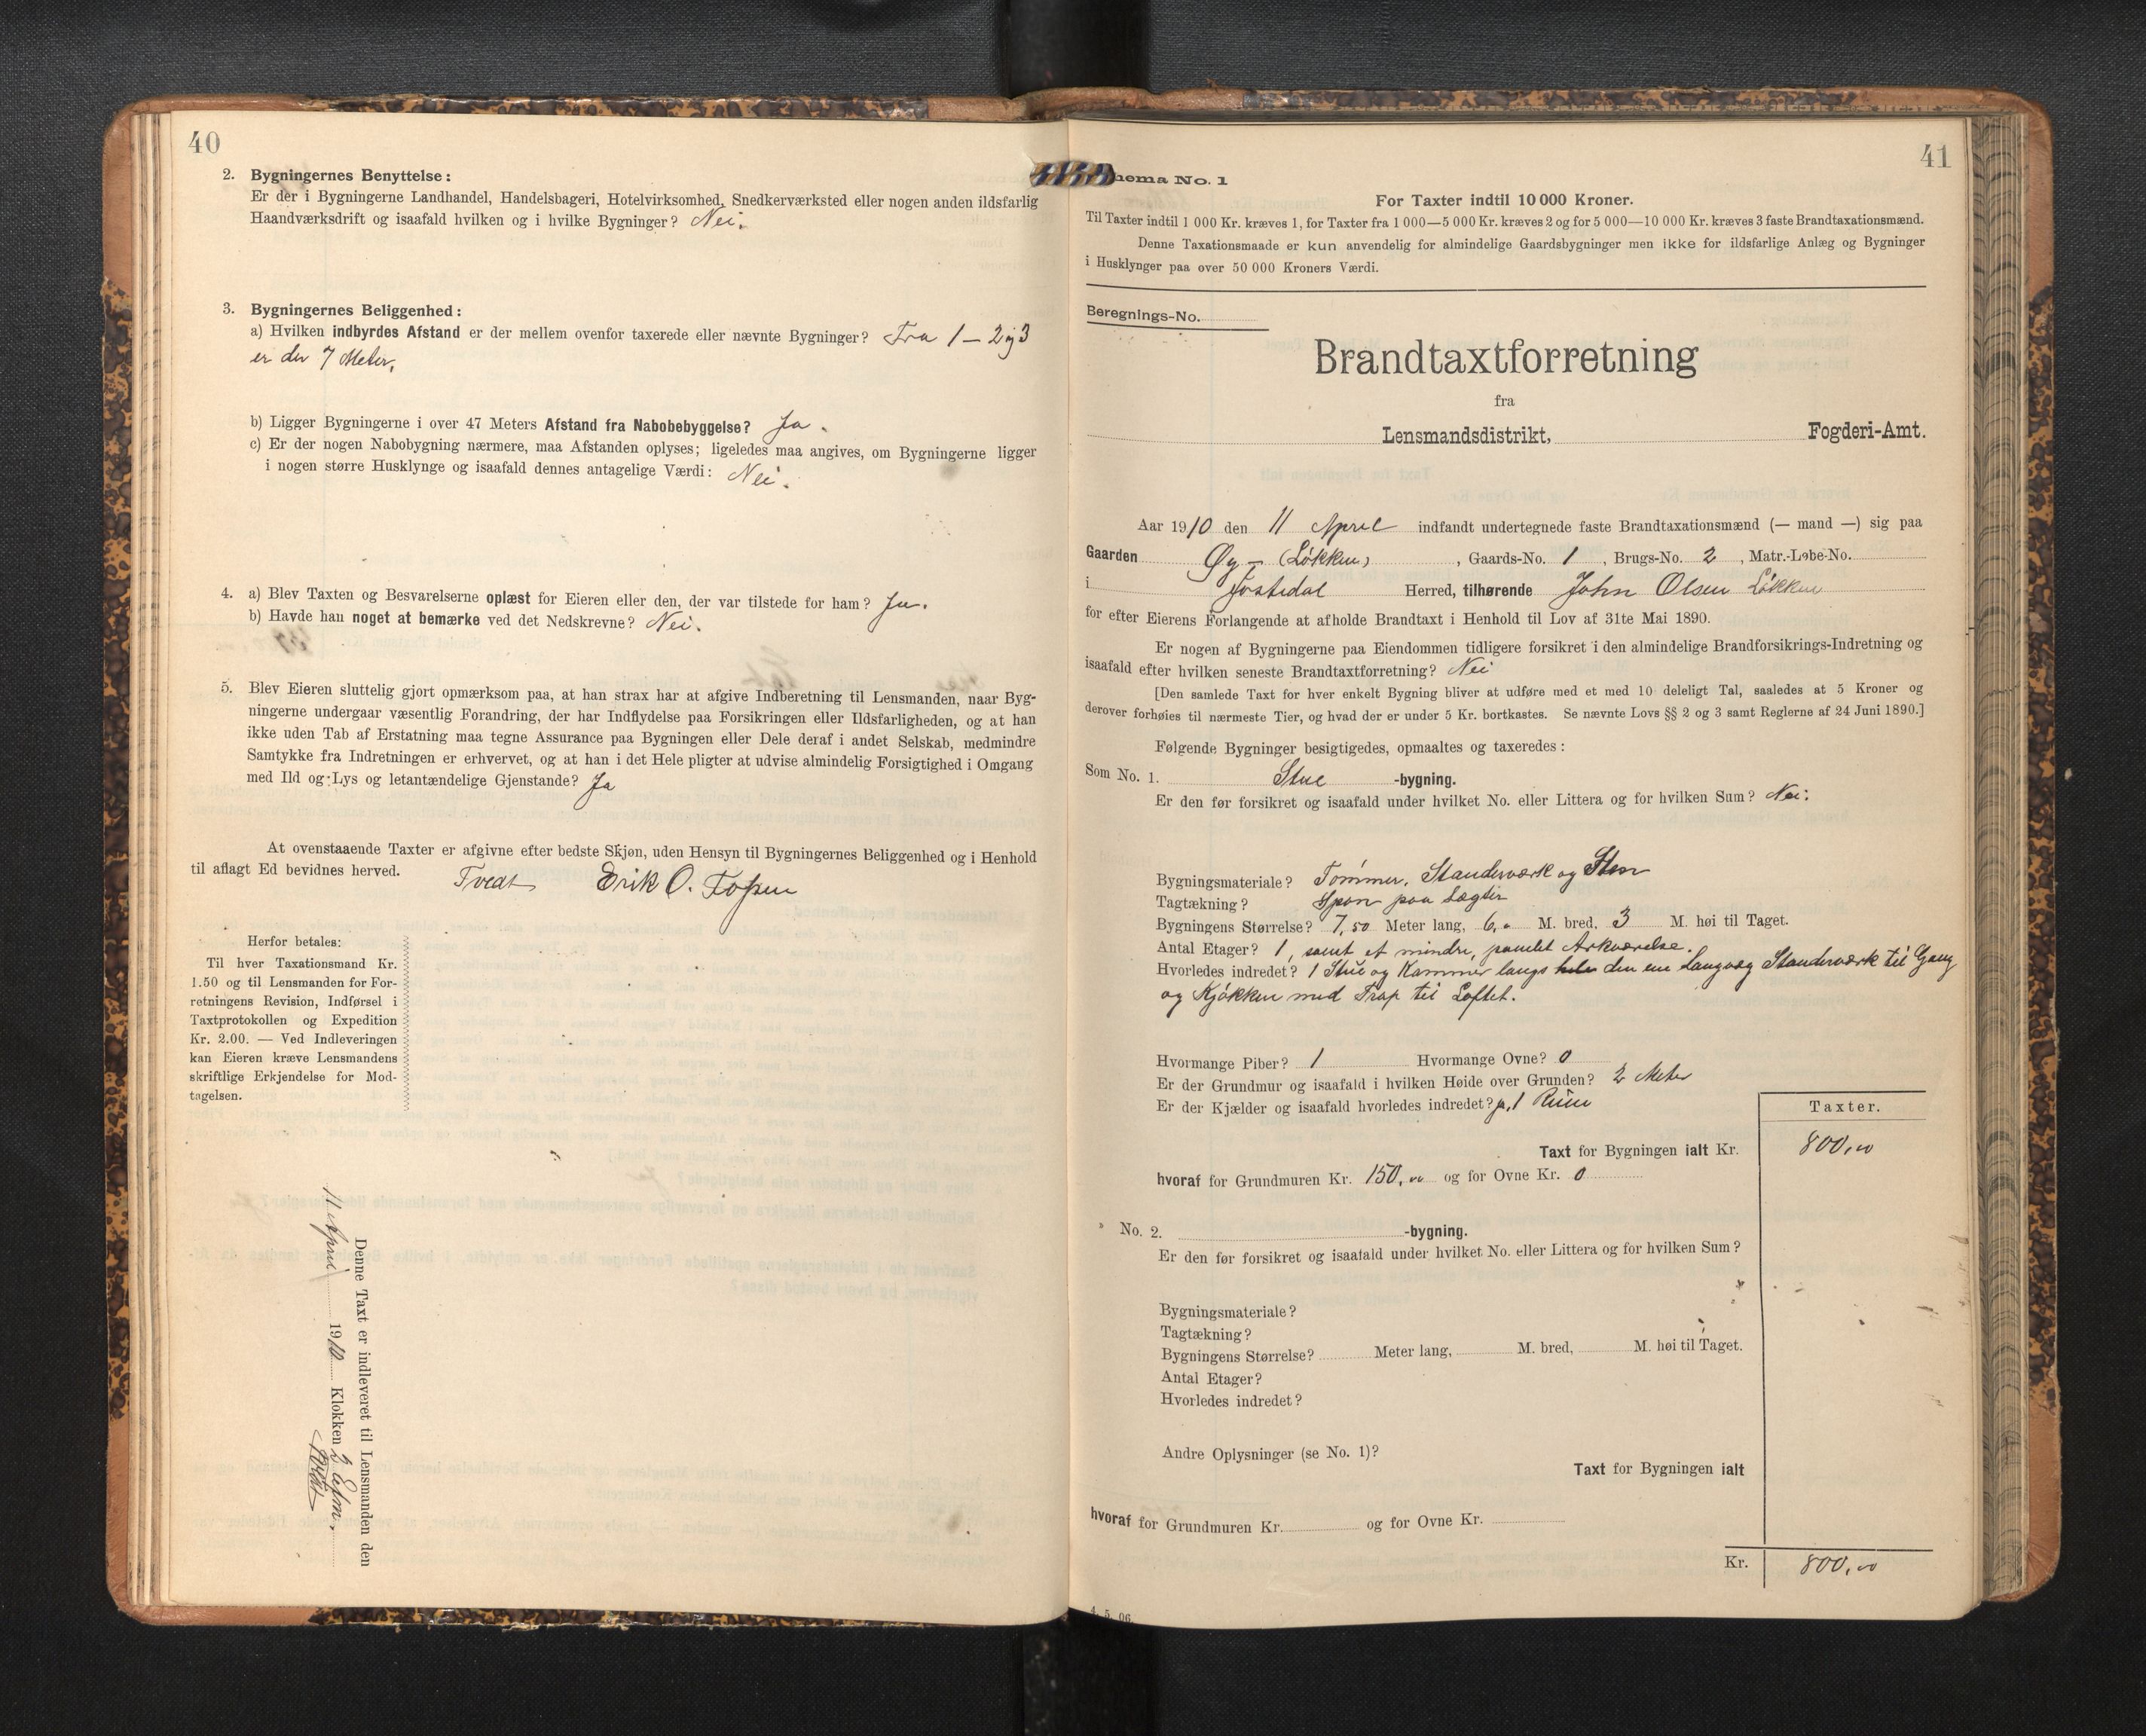 40
2. Bygningernes Benyttelse:
Er der i Bygningerne Landhandel, Handelsbageri, Hotelvirksomhed, Snedkerværksted eller nogen anden ildsfarlig
Haandværksdrift og isaafald hvilken og i hvilke Bygninger? Nei.
3. Bygningernes Beliggenhed:
a) Hvilken indbyrdes Afstand er der mellem ovenfor taxerede eller nævnte Bygninger? Fra 1 – 2 og 3
er der 7 Meter.
b) Ligger Bygningerne i over 47 Meters Afstand fra Nabobebyggelse? Ja.
c) Er der nogen Nabobygning nærmere, maa Afstanden oplyses; ligeledes maa angives, om Bygningerne ligger
i nogen større Husklynge og isaafald dennes antagelige Værdi: Nei.
4. a) Blev Taxten og Besvarelserne oplæst for Eieren eller den, der var tilstede for ham? Ja.
b) Havde han noget at bemærke ved det Nedskrevne? Nei.
5. Blev Eieren sluttelig gjort opmærksom paa, at han strax har at afgive Indberetning til Lensmanden, naar Byg-
ningerne undergaar væsentlig Forandring, der har Indflydelse paa Forsikringen eller Ildsfarligheden, og at han
ikke uden Tab af Erstatning maa tegne Assurance paa Bygningen eller Dele deraf i andet Selskab, medmindre
Samtykke fra Indretningen er erhvervet, og at han i det Hele pligter at udvise almindelig Forsigtighed i Omgang
med Ild og Lys og letantændelige Gjenstande? Ja
At ovenstaaende Taxter er afgivne efter bedste Skjøn, uden Hensyn til Bygningernes Beliggenhed og i Henhold
til aflagt Ed bevidnes herved. Tvedt Erik O.
Herfor betales:
Til hver Taxationsmand Kr.
1.50 og til Lensmanden for For-
retningens Revision, Indførsel i
Taxtprotokollen og Expedition
Kr. 2.00. — Ved Indleveringen
kan Eieren kræve Lensmandens
skriftlige Erkjendelse for Mod-
tagelsen.
Denne Taxt er indleveret til Lensmanden den
11 April 1910 Klokken 3 Efm.
Tvedt
41
hema No. 1
For Taxter indtil 10 000 Kroner.
Til Taxter indtil 1 000 Kr. kræves 1, for Taxter fra 1 000—5 000 Kr. kræves 2 og for 5 000—10 000 Kr. kræves 3 faste Brandtaxationsmænd.
Denne Taxationsmaade er kun anvendelig for almindelige Gaardsbygninger men ikke for ildsfarlige Anlæg og Bygninger
i Husklynger paa over 50 000 Kroners Værdi.
Beregnings-No.
Brandtaxtforretning
fra
Lensmandsdistrikt, Fogderi-Amt.
Aar 1910 den 11 April indfandt undertegnede faste Brandtaxationsmænd (— mand —) sig paa
Gaarden Øy – (Løkken), Gaards-No. 1, Brugs-No. 2, Matr.-Løbe-No.
i Jostedal Herred, tilhørende John Olsen Løkken
for efter Eierens Forlangende at afholde Brandtaxt i Henhold til Lov af 31te Mai 1890.
Er nogen af Bygningerne paa Eiendommen tidligere forsikret i den almindelige Brandforsikrings-Indretning og
isaafald efter hvilken seneste Brandtaxtforretning? Nei
[Den samlede Taxt for hver enkelt Bygning bliver at udføre med et med 10 deleligt Tal, saaledes at 5 Kroner og
derover forhøies til nærmeste Tier, og hvad der er under 5 Kr. bortkastes. Se nævnte Lovs §§ 2 og 3 samt Reglerne af 24 Juni 1890.]
Følgende Bygninger besigtigedes, opmaaltes og taxeredes:
Som No. 1. Stue -bygning.
Er den før forsikret og isaafald under hvilket No. eller Littera og for hvilken Sum? Nei.
Bygningsmateriale? Tømmer, Standerværk og Sten
Tagtækning? Spon paa Lægter
Bygningens Størrelse? 7,50 Meter lang, 6,0 M. bred, 3 M. høi til Taget.
Antal Etager? 1, samt et mindre, panelet Arkværelse.
Hvorledes indredet? 1 Stue og Kammer langs hele den ene Langvæg Standerværk til Gang
og Kjøkken med Trap til Loftet.
Hvormange Piber? 1 Hvormange Ovne? 0
Er der Grundmur og isaafald i hvilken Høide over Grunden? 2 Meter
Er der Kjælder og isaafald hvorledes indredet? ja, 1 Rum
Taxter.
Taxt for Bygningen ialt Kr. 800,00
hvoraf for Grundmuren Kr. 150,00 og for Ovne Kr. 0
" No. 2. -bygning.
Er den før forsikret og isaafald under hvilket No. eller Littera og for hvilken Sum?
Bygningsmateriale?
Tagtækning?
Bygningens Størrelse? Meter lang, M. bred, M. høi til Taget.
Antal Etager?
Hvorledes indredet?
Andre Oplysninger (se No. 1)?
Taxt for Bygningen ialt
hvoraf for Grundmuren Kr. og for Ovne Kr.
Kr. 800,00
4. 5. 06.